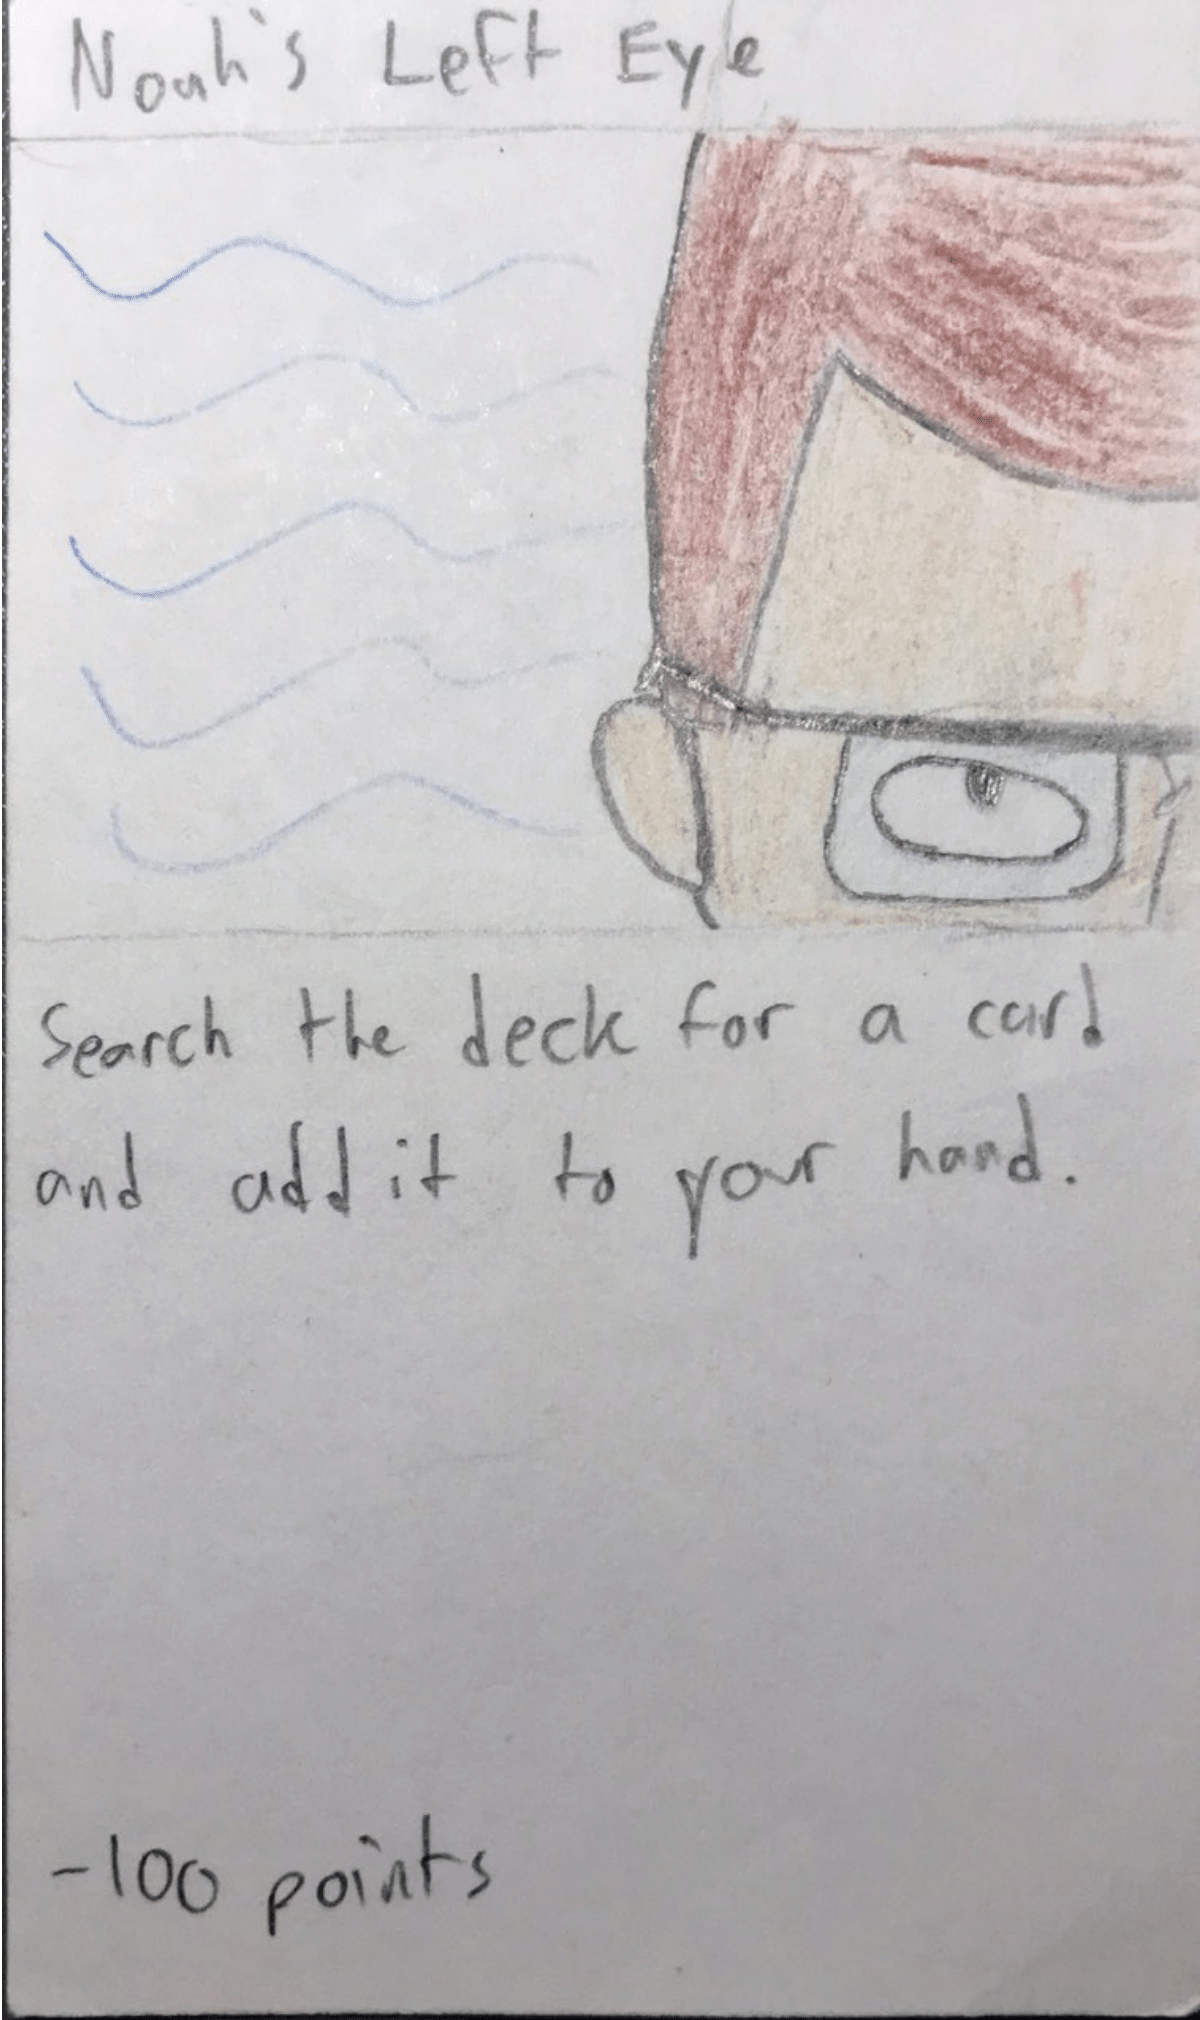 Noah's Left Eye
Search the deck for a card
and add it to your hand.
-100 points